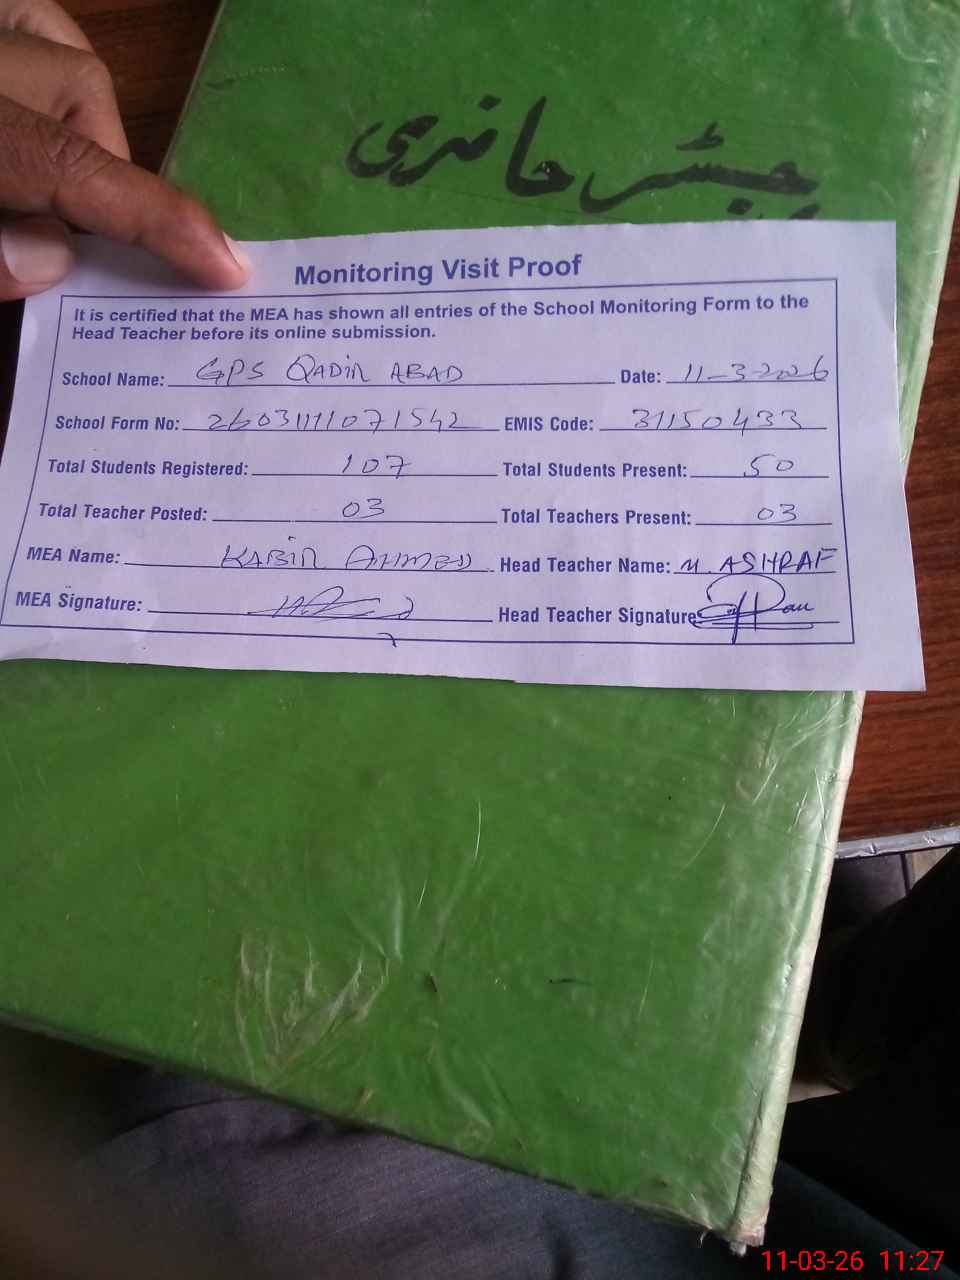 رجسٹر حاضری
Monitoring Visit Proof
It is certified that the MEA has shown all entries of the School Monitoring Form to the
Head Teacher before its online submission.
School Name: GPS QADIR ABAD Date: 11-3-2026
School Form No: 26031111071542 EMIS Code: 31150433
Total Students Registered: 107 Total Students Present: 50
Total Teacher Posted: 03 Total Teachers Present: 03
MEA Name: KABIR AHMED Head Teacher Name: M. ASHRAF
MEA Signature: Head Teacher Signature:
11-03-26 11:27